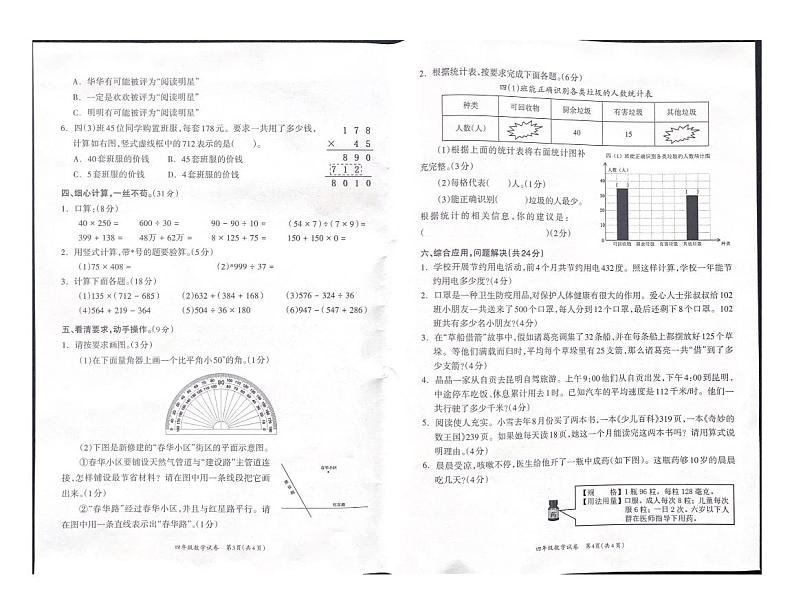 A．华华有可能被评为“阅读明星”
B．一定是欢欢被评为“阅读明星”
C．明明有可能被评为“阅读明星”
6．四(3)班45位同学购置班服,每套178元。要求一共用了多少钱,
计算如右图,竖式虚线框中的712表示的是(　　)。
A．40套班服的价钱　B．45套班服的价钱
C．5套班服的价钱　D．4套班服的价钱
1 7 8
× 4 5
8 9 0
7 1 2
8 0 1 0
四、细心计算,一丝不苟。(31分)
1．口算:(8分)
40×250＝　600÷30＝　90－90÷10＝　(54×7)÷(7×9)＝
399＋138＝　48万＋62万＝　8×125＋75＝　150＋150×0＝
2．用竖式计算,带*号的题要验算。(5分)
(1)75×408＝　(2)*999÷37＝
3．计算下面各题。(18分)
(1)135×(712－685)　(2)632＋(384＋168)　(3)576－324÷36
(4)564＋219－364　(5)504÷36×180　(6)947－(547＋286)
五、看清要求,动手操作。(9分)
1．请按要求画图。(3分)
(1)在下面量角器上画一个比平角小50°的角。(1分)
(2)下图是新修建的“春华小区”街区的平面示意图。
①春华小区要铺设天然气管道与“建设路”主管道连
接,怎样铺设最节省材料？请在图中用一条线段把它画
出来。(1分)
②“春华路”经过春华小区,并且与红星路平行。请
在图中用一条直线表示出“春华路”。(1分)
春华小区
建设路
红星路
四年级数学试卷　第3页(共4页)
2．根据统计表,按要求完成下面各题。(6分)
四(1)班能正确识别各类垃圾的人数统计表
种类　可回收物　厨余垃圾　有害垃圾　其他垃圾
人数(人)　40　15
(1)根据上面的统计表将右面统计图补
充完整。(3分)
(2)每格代表(　　)人。(1分)
(3)能正确识别(　　)垃圾的人最少。
根据统计的相关信息,你的建议是:
(　　)(2分)
四(1)班能正确识别各类垃圾的人数统计图
人数(人)
可回收物　厨余垃圾　有害垃圾　其他垃圾　种类
六、综合应用,问题解决(共24分)
1．学校开展节约用电活动,前4个月共节约用电432度。照这样计算,学校一年能节
约用电多少度?(4分)
2．口罩是一种卫生防疫用品,对保护人体健康有很大的作用。爱心人士张叔叔给102
班小朋友一共送来了500个口罩,每人分到12个口罩,最后还剩下8个口罩。102
班共有多少名小朋友?(4分)
3．在“草船借箭”故事中,假如诸葛亮调集了32条船,并在每条船上都摆放好125个草
垛。等他们满载而归时,平均每个草垛里有25支箭,那么诸葛亮一共“借”到了多
少支箭?(4分)
4．晶晶一家从自贡去昆明自驾旅游。上午9:00他们从自贡出发,下午4:00到昆明,
中途停车吃饭、休息累计用去1时。已知汽车的平均速度是112千米/时。他们一
共行驶了多少千米?(4分)
5．阅读使人充实。小雪去年8月份买了两本书,一本《少儿百科》319页,一本《奇妙的
数王国》239页。如果她每天读18页,她这一个月能读完这两本书吗？请用算式说
明理由。(4分)
6．晨晨受凉,咳嗽不停,医生给他开了一瓶中成药(如下图)。这瓶药够10岁的晨晨
吃几天?(4分)
药
【规　格】1瓶96粒，每粒128毫克。
【用法用量】口服。成人每次8粒；儿童每次
服6粒；一日2次。六岁以下人
群在医师指导下用药。
四年级数学试卷　第4页(共4页)